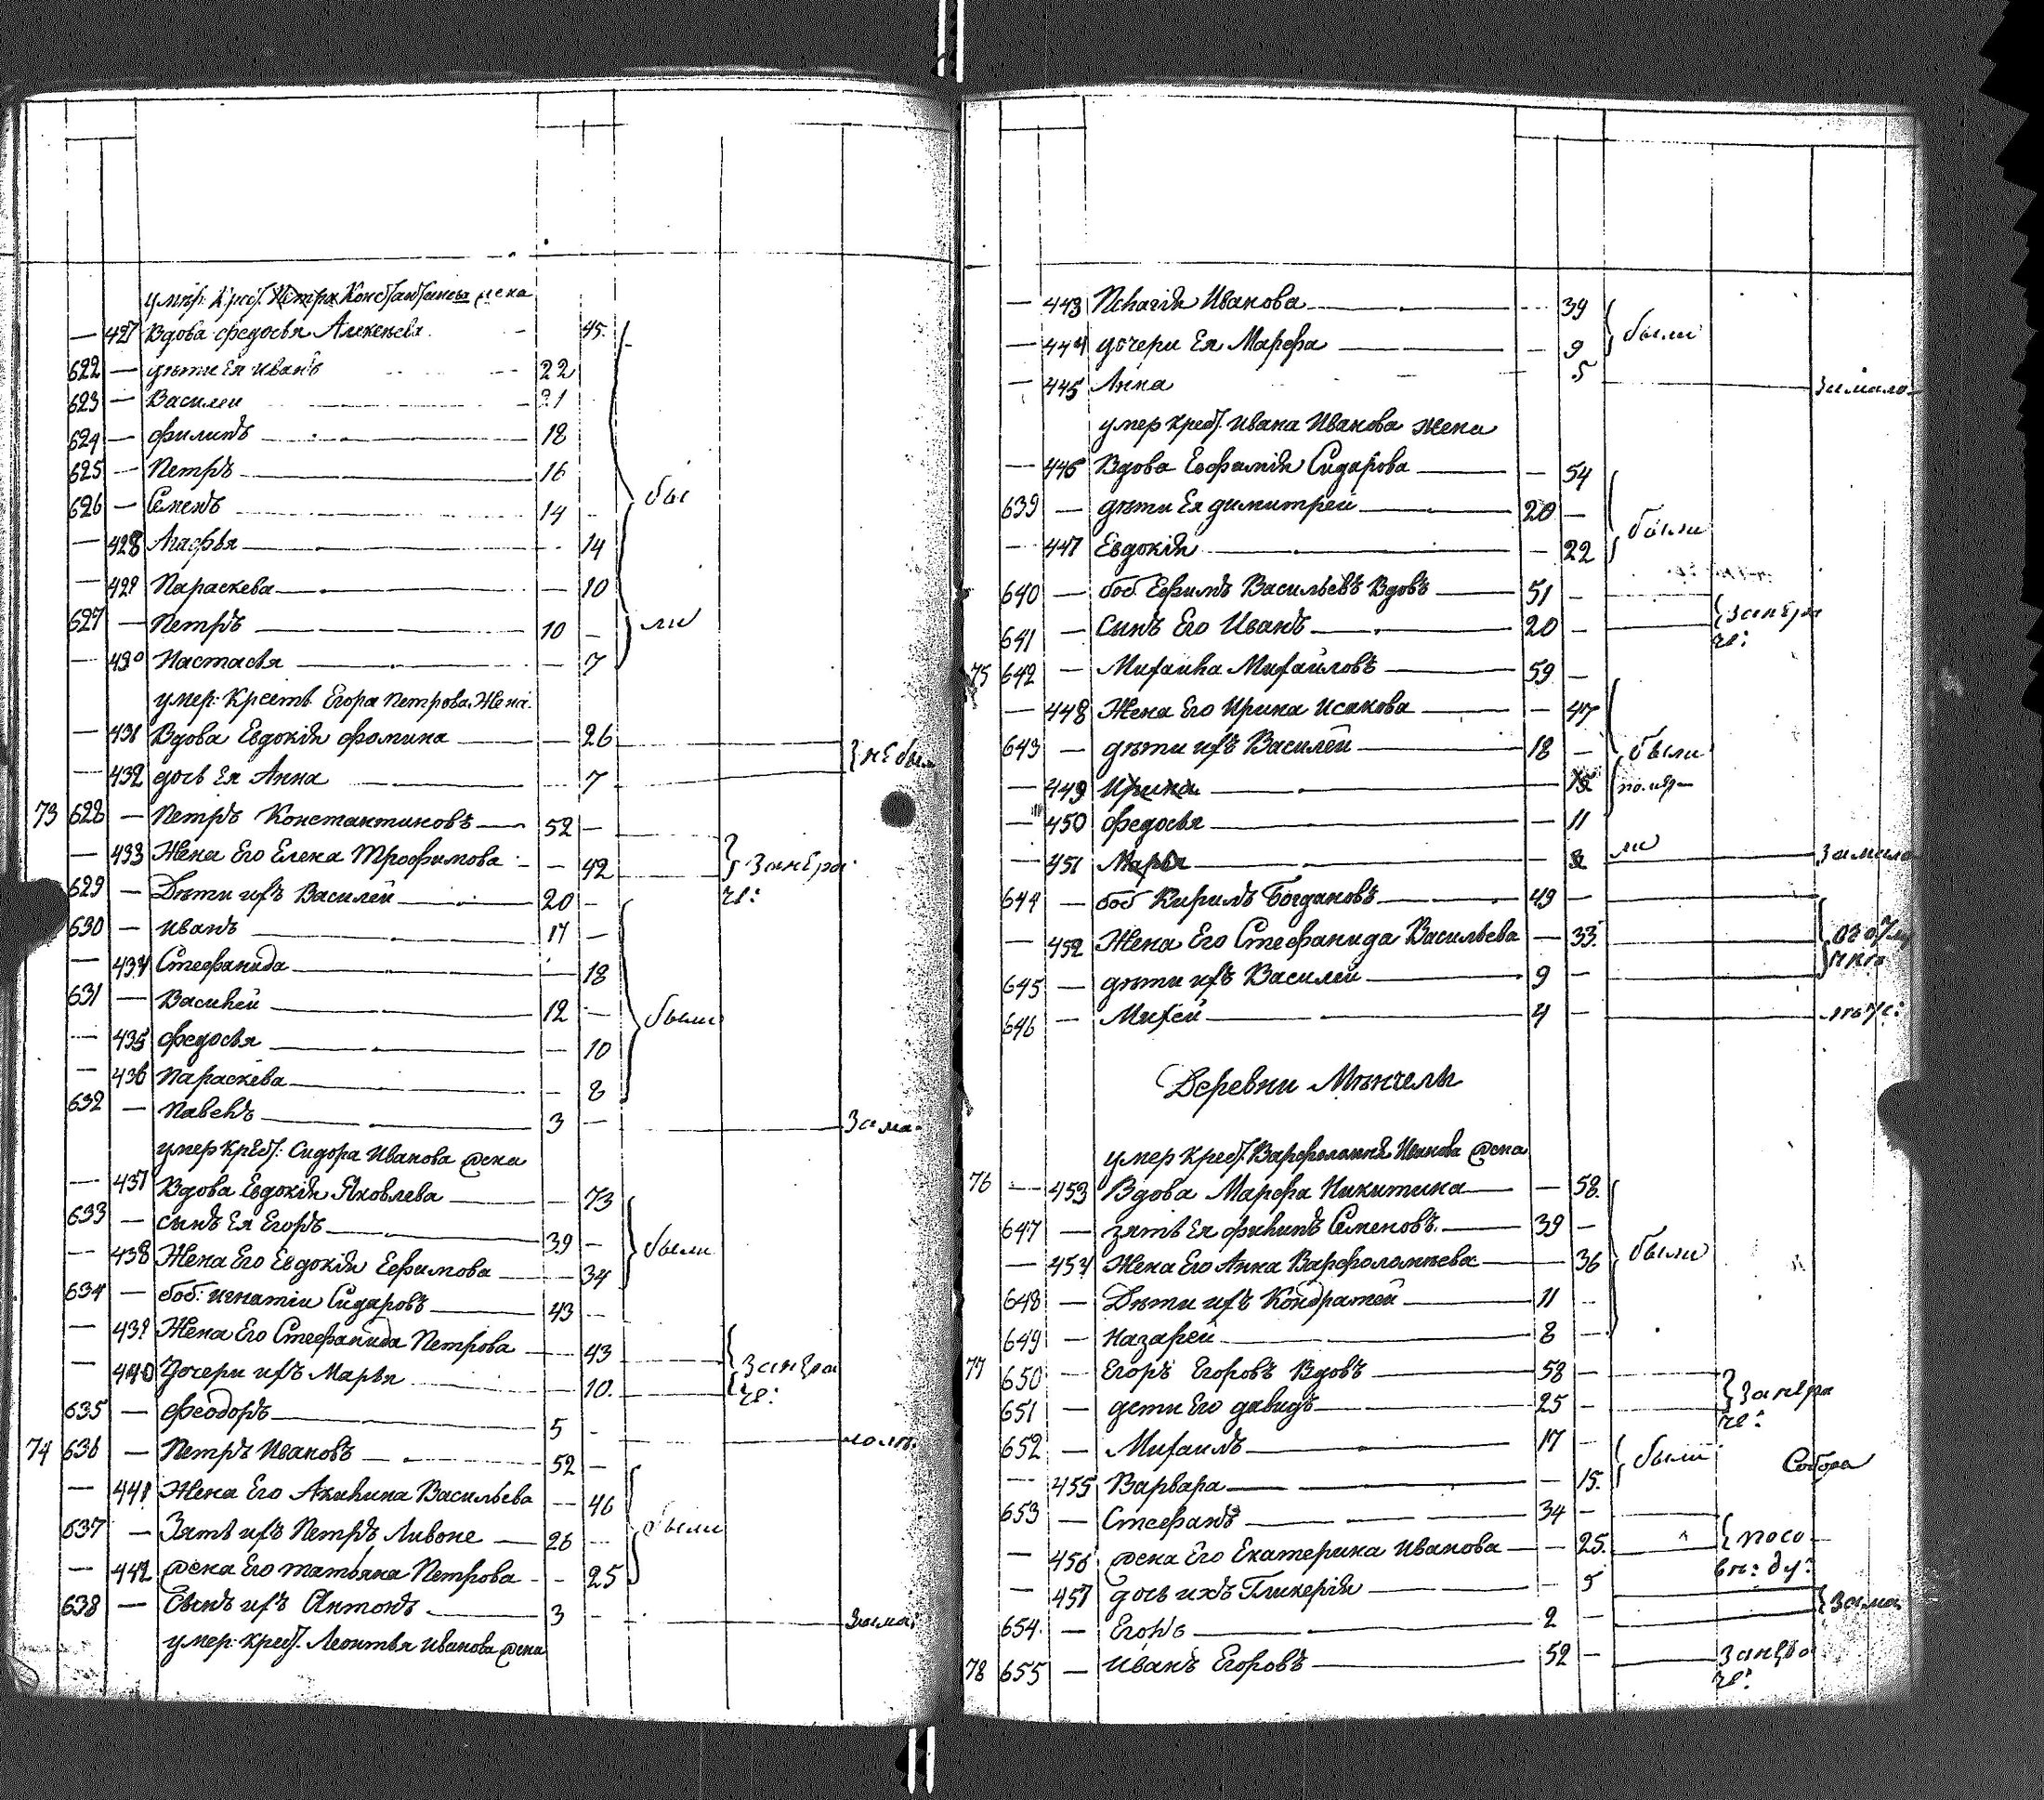 умер: Крест. Петра Константинова жена
— 427 Вдова Федосья Алексеева — 45
622 — дѣти Ея Иванъ 22
623 — Василеи 21
624 — Филипъ 18
625 — Петръ 16
626 — Семенъ 14 — бы
— 428 Агафья — 14
— 429 Параскева — 10
627 — Петръ 10 — ли
— 430 Настасья — 7
умер: Крестъ. Егора Петрова Жена
— 431 Вдова Евдокія Фомина — 26
— 432 дочь Ея Анна — 7 не был
73 628 — Петръ Константиновъ 52 —
— 433 Жена Его Елена Трофимова — 42 Занера
629 — Дѣти ихъ Василей 20 — че:
630 — Иванъ 17 —
— 434 Стефанида — 18
631 — Василей 12 — были
— 435 Федосья — 10
— 436 Параскева — 8
632 — Павелъ 3 — За ма:
умер Крест: Сидора Иванова жена
— 437 Вдова Евдокія Яковлева — 73
633 — сынъ Ея Егоръ 39 — были
— 438 Жена Его Евдокія Ефимова — 34
634 — боб: Игнатіи Сидаровъ 43 —
— 439 Жена Его Стефанида Петрова — 43 Занера
— 440 Дочери ихъ Марья — 10 че:
635 — Феодоръ 5 —
74 636 — Петръ Ивановъ 52 —
— 441 Жена Его Акилина Васильева — 46
637 — Зять ихъ Петръ Ливоне 26 — были
— 442 жена Его Татьяна Петрова — 25
638 — Сынъ ихъ Антонъ 3 — Зама:
умер: Крест. Леонтья Иванова жена
— 443 Пелагія Иванова — 39 были
— 444 дочери Ея Марфа — 9
— 445 Анна — 5 Зимало
умер Крест. Ивана Иванова жена
— 446 Вдова Евфимія Сидарова — 54
639 — дѣти Ея Димитрей 20 — были
— 447 Евдокія — 22
640 — боб Ефимъ Васильевъ Вдовъ 51 — Занера
641 — Сынъ Его Иванъ 20 — че:
75 642 — Михаила Михайловъ 59 —
— 448 Жена Его Ирина Исакова — 47
643 — дѣти ихъ Василей 18 — были
— 449 Ирина — 15
— 450 Федосья — 11
— 451 Марья — 3 ли Замало
644 — боб Кирилъ Богдановъ 49 —
— 452 Жена Его Стефанида Васильева — 33
645 — дѣти ихъ Василей 9 —
646 — Михей 4 —
Деревни Мянчелы
умер Крест. Варфоломѣя Иванова жена
76 — 453 Вдова Марфа Никитина — 58
647 — зять Ея Филипъ Семеновъ 39 —
— 454 Жена Его Анна Варфоломѣева — 36 были
648 — Дѣти ихъ Кондратей 11 —
649 — Назарей 8 —
77 650 — Егоръ Егоровъ Вдовъ 58 — Занера
651 — дети Его давидъ 25 — че:
652 — Михаилъ 17 — были Собора
— 455 Варвара — 15
653 — Стефанъ 34 —
— 456 жена Его Екатерина Иванова — 25
— 457 дочь ихъ Гликерія — 5 Зама
654 — Егоръ 2 —
78 655 — Иванъ Егоровъ 52 — Занера
че: